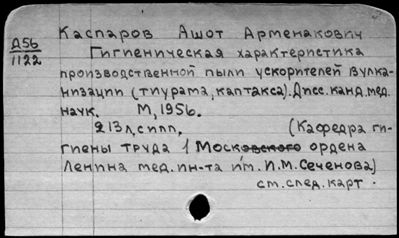 Каспаров Ашот Арменакович
Д56
1122
Гигиеническая характеристика
производственной пыли ускорителей вулка-
низации (тиурама, каптакса). Дисс. канд. мед.
наук. М, 1956.
213л, с илл, (Кафедра ги-
гиены труда 1 Московского ордена
Ленина мед. ин-та им. И.М. Сеченова)
см. след. карт.